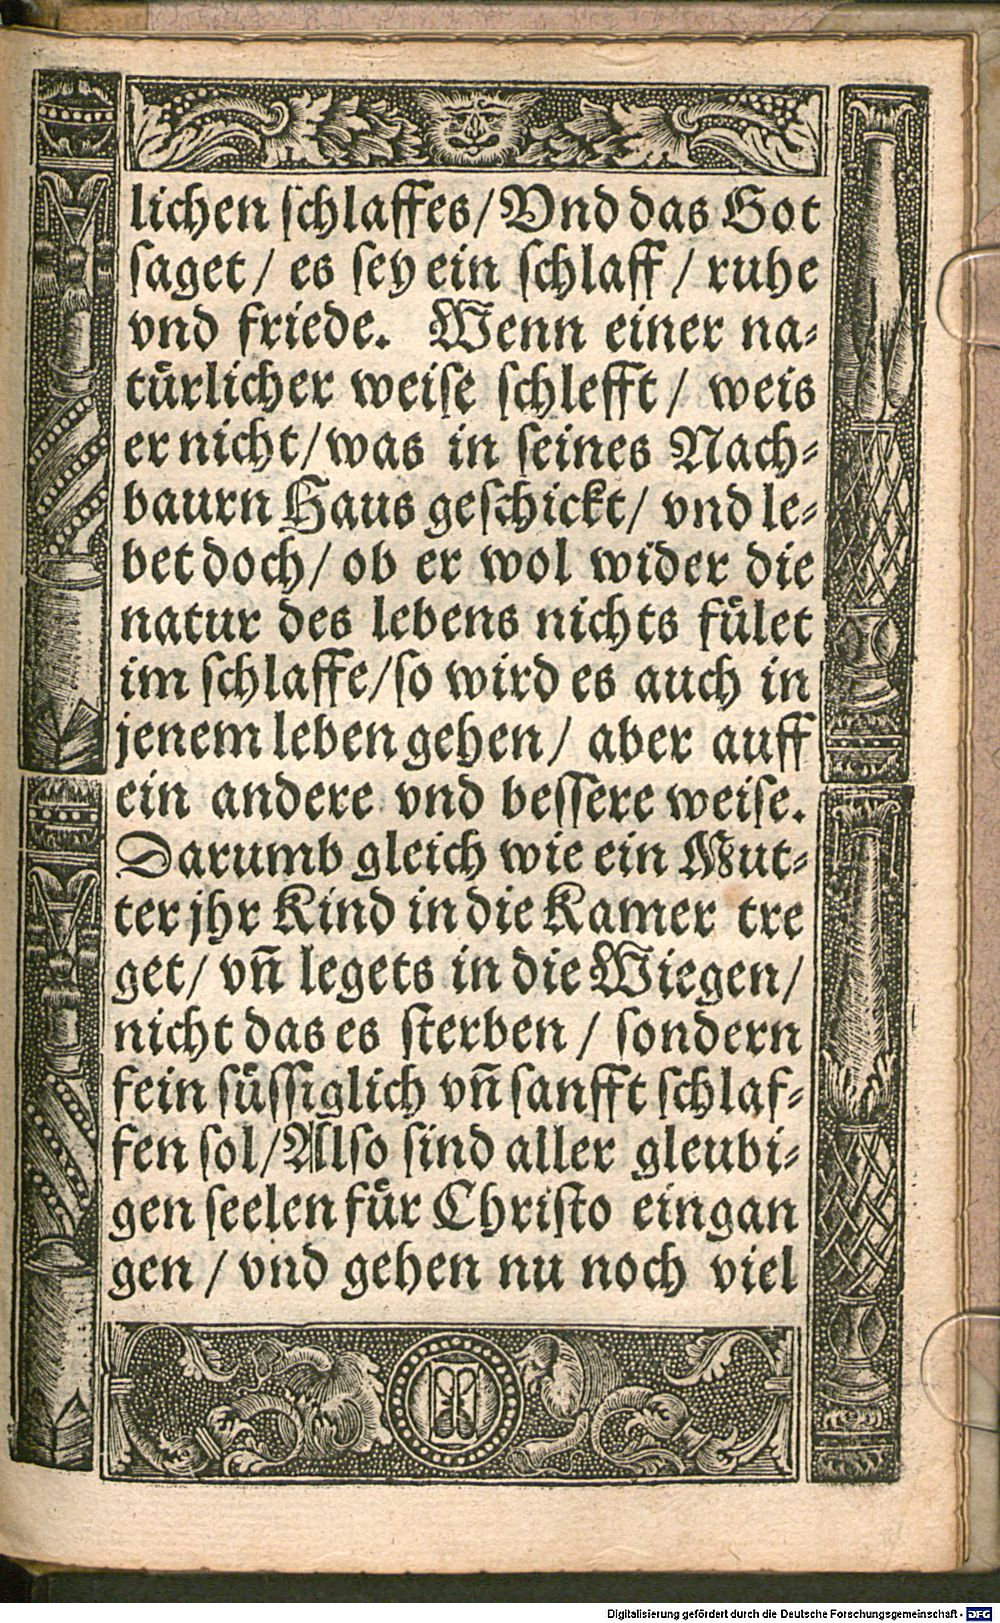 lichen ſchlaffes/ Vnd das Got
ſaget/ es ſey ein ſchlaff/ ruhe
vnd friede. Wenn einer na⸗
tuͤrlicher weiſe ſchlefft/ weis
er nicht/ was in ſeines Nach⸗
baurn Haus geſchickt/ vnd le⸗
bet doch/ ob er wol wider die
natur des lebens nichts fuͤlet
im ſchlaffe/ ſo wird es auch in
jenem leben gehen/ aber auff
ein andere vnd beſſere weiſe.
Darumb gleich wie ein Mut⸗
ter jhr Kind in die Kamer tre
get/ vn̄ legets in die Wiegen/
nicht das es ſterben/ ſondern
fein ſuͤſſiglich vn̄ ſanfft ſchlaf⸗
fen ſol/ Alſo ſind aller gleubi⸗
gen ſeelen fuͤr Chriſto eingan
gen/ vnd gehen nu noch viel
Digitalisierung gefördert durch die Deutsche Forschungsgemeinschaft - DFG